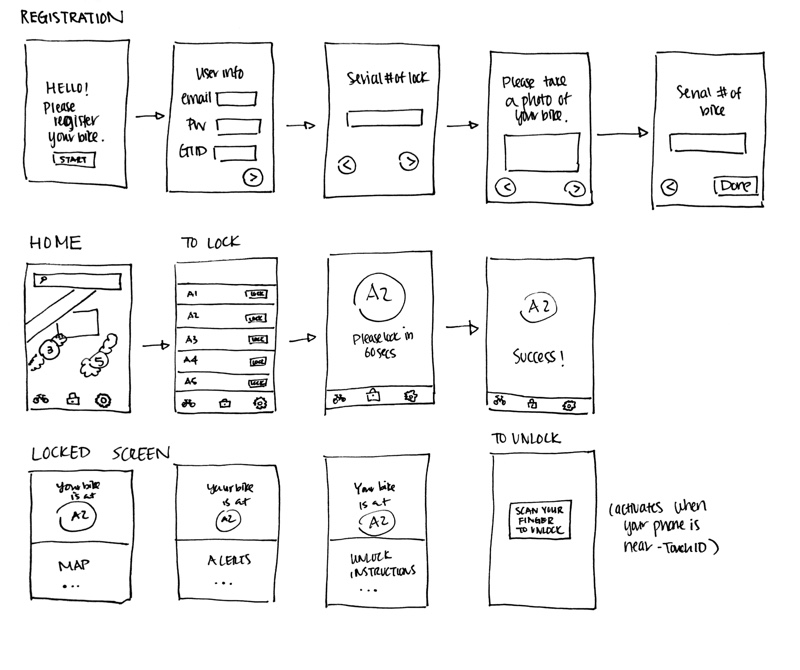 REGISTRATION
HELLO!
Please
register
your bike.
START
User info
email
PW
GTID
>
Serial # of lock
<
>
Please take
a photo of
your bike.
<
>
Serial # of
bike
<
Done
HOME
3
5
TO LOCK
A1 LOCK
A2 LOCK
A3 LOCK
A4 LOCK
A5 LOCK
A2
Please lock in
60 secs
A2
Success!
LOCKED SCREEN
Your bike
is at
A2
MAP
...
Your bike
is at
A2
ALERTS
...
Your bike
is at
A2
UNLOCK
INSTRUCTIONS
...
TO UNLOCK
SCAN YOUR
FINGER
TO UNLOCK
(activates when
your phone is
near - Touch ID)